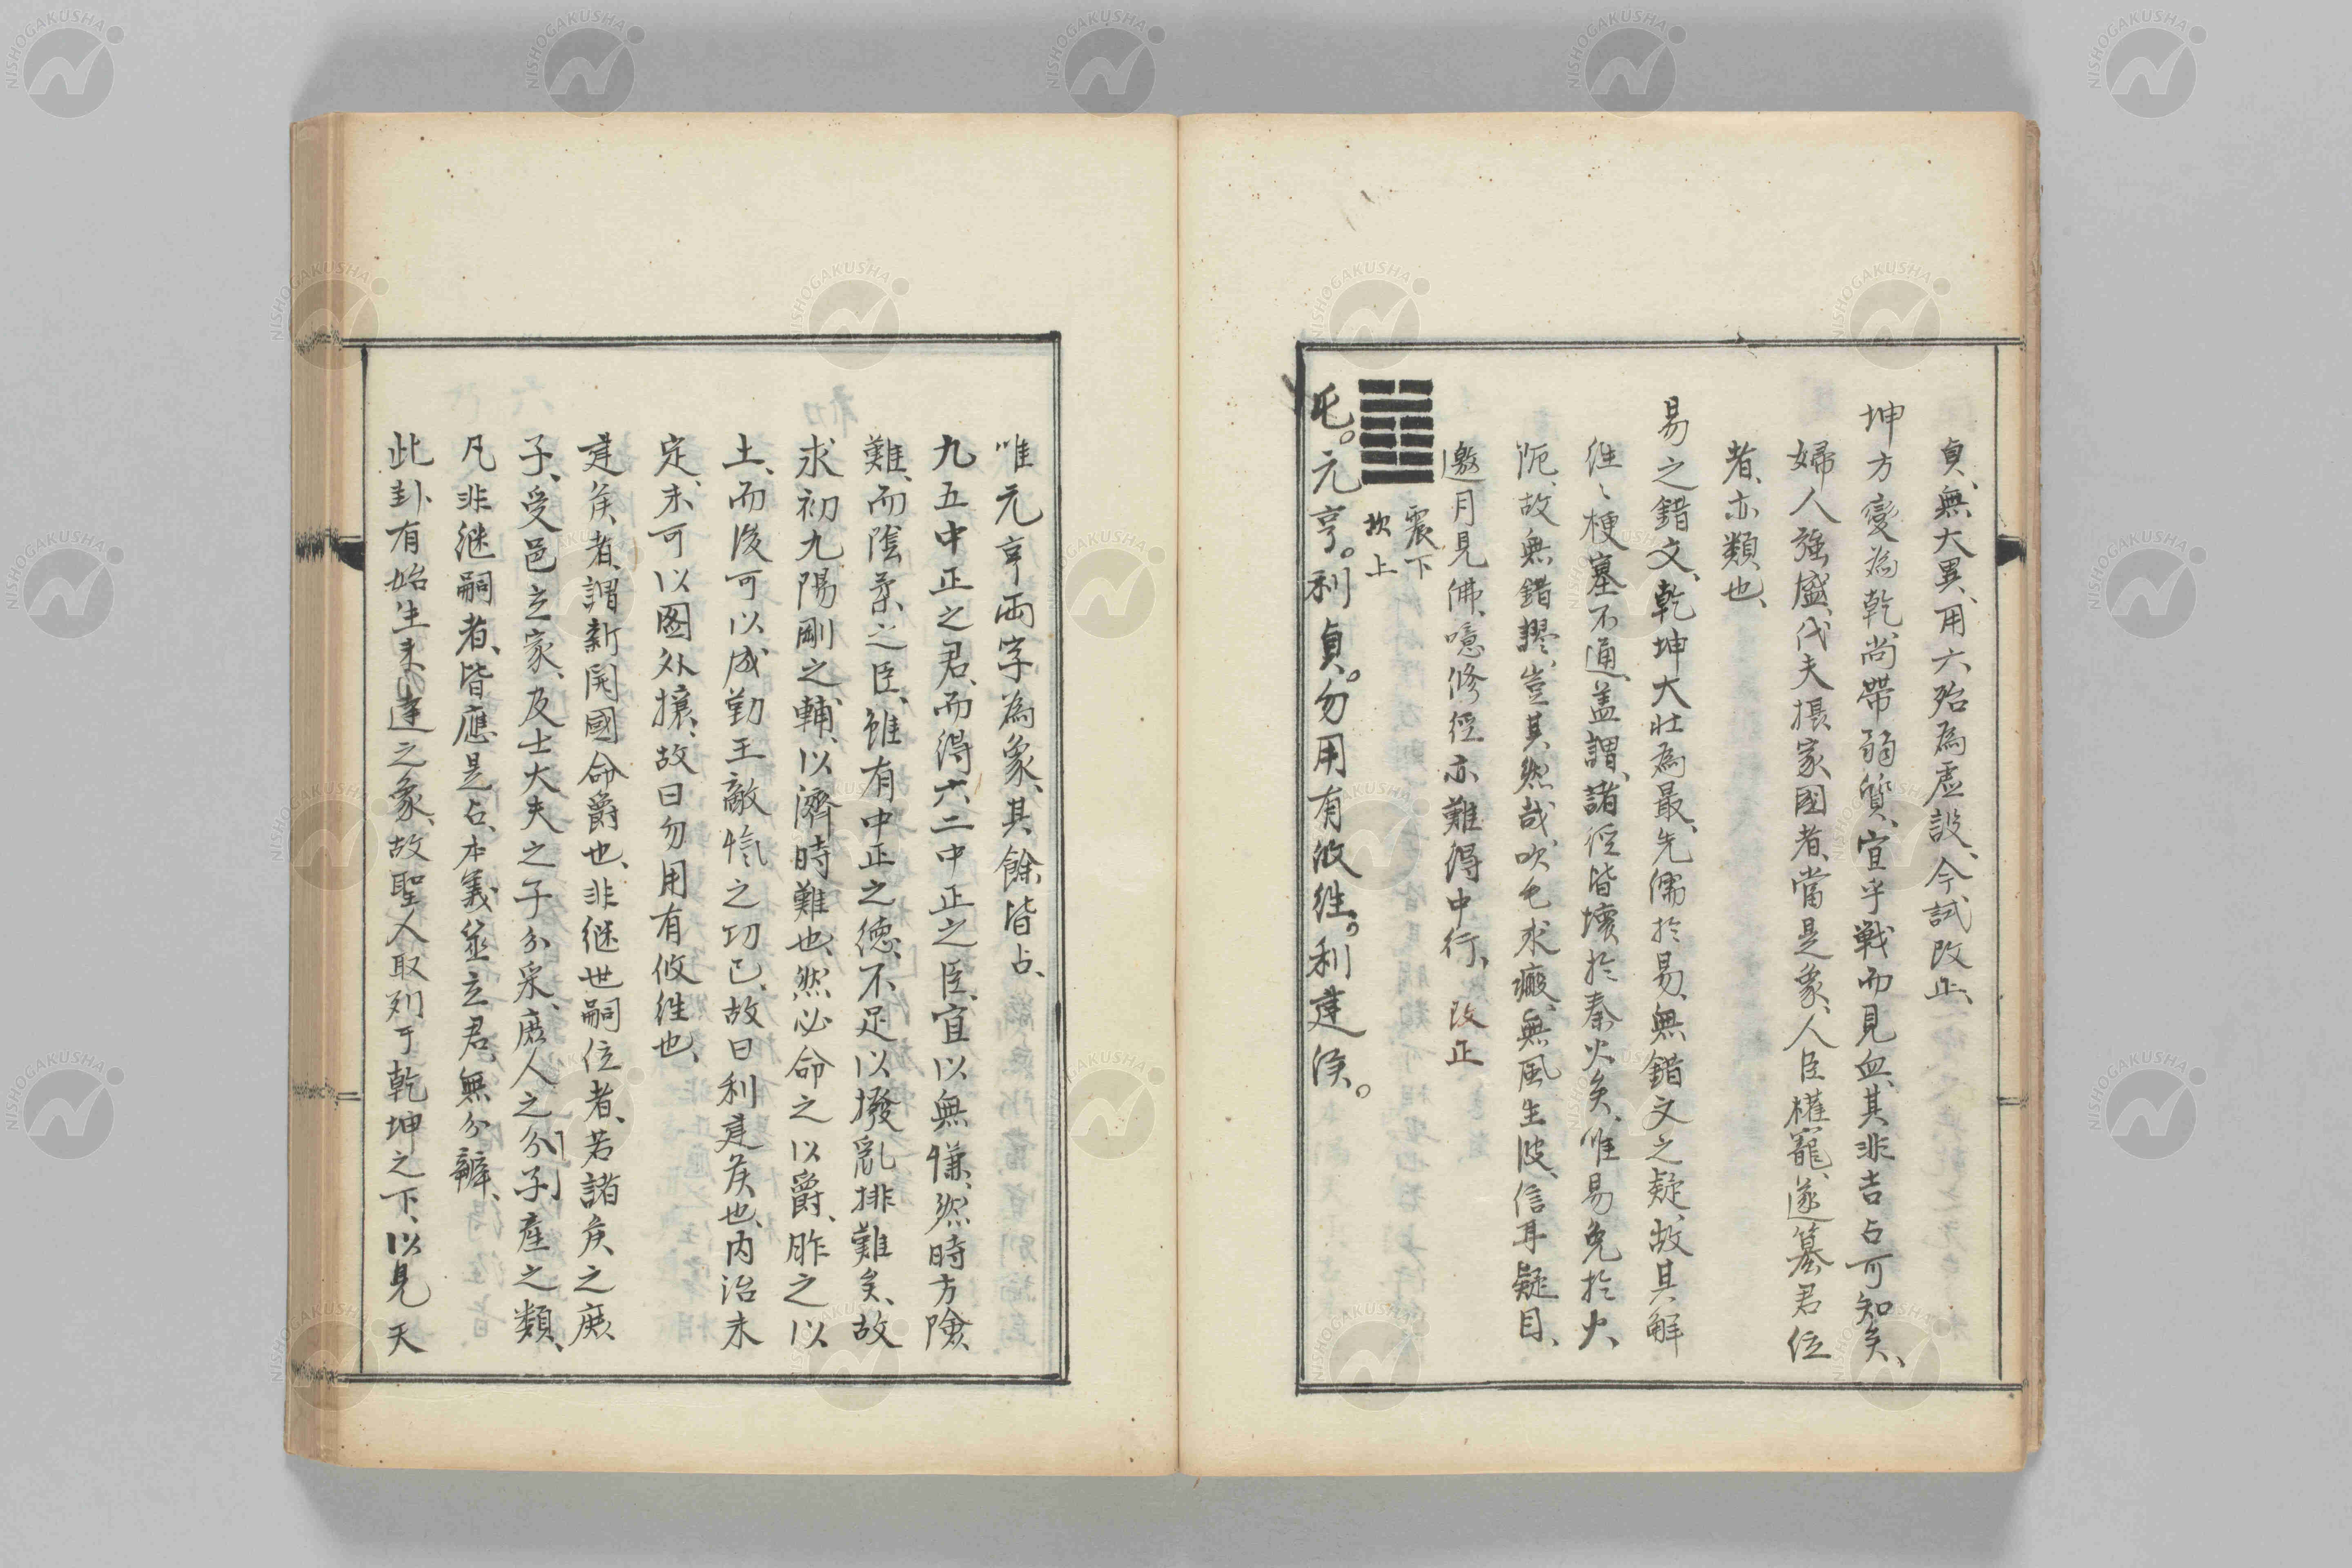 貞、無大異、用六殆為虛設、今試改正、
坤方變為乾、尚帶弱質、宜乎戰而見血、其非吉占可知矣、
婦人強盛、代夫摂家国者、當是象、人臣權寵、遂簒君位
者、亦類也、
易之錯文、乾坤大壮為最、先儒於易、無錯文之疑、故其解
往〻梗塞不通、盖謂、諸経皆壞於秦火矣、唯易免於火、
阨、故無錯謬、豈其然哉、吹毛求瘢、無風生波、信耳疑目、
邀月見佛、噫修経亦難得中行、改正
震下
坎上
屯。元亨。利貞。勿用有攸往。利建侯。
唯元亨両字為象、其餘皆占、
九五中正之君、而得六二中正之臣、宜以無慊、然時方險
難、而陰柔之臣、雖有中正之德、不足以撥亂排難矣、故
求初九陽剛之輔、以濟時難也、然必命之以爵、胙之以
土、而後可以成勤王敵愾之功已、故曰利建矦也、内治未
定、未可以圖外攘、故曰勿用有攸往也、
建矦者、謂新開國命爵也、非継世嗣位者、若諸矦之庶
子、受邑立家、及士大夫之子分采、庶人之分子産之類、
凡非継嗣者、皆應是占、本義並立君、無分辨、
此卦有始生未達之象、故聖人取列于乾坤之下、以見天
NISHOGAKUSHA